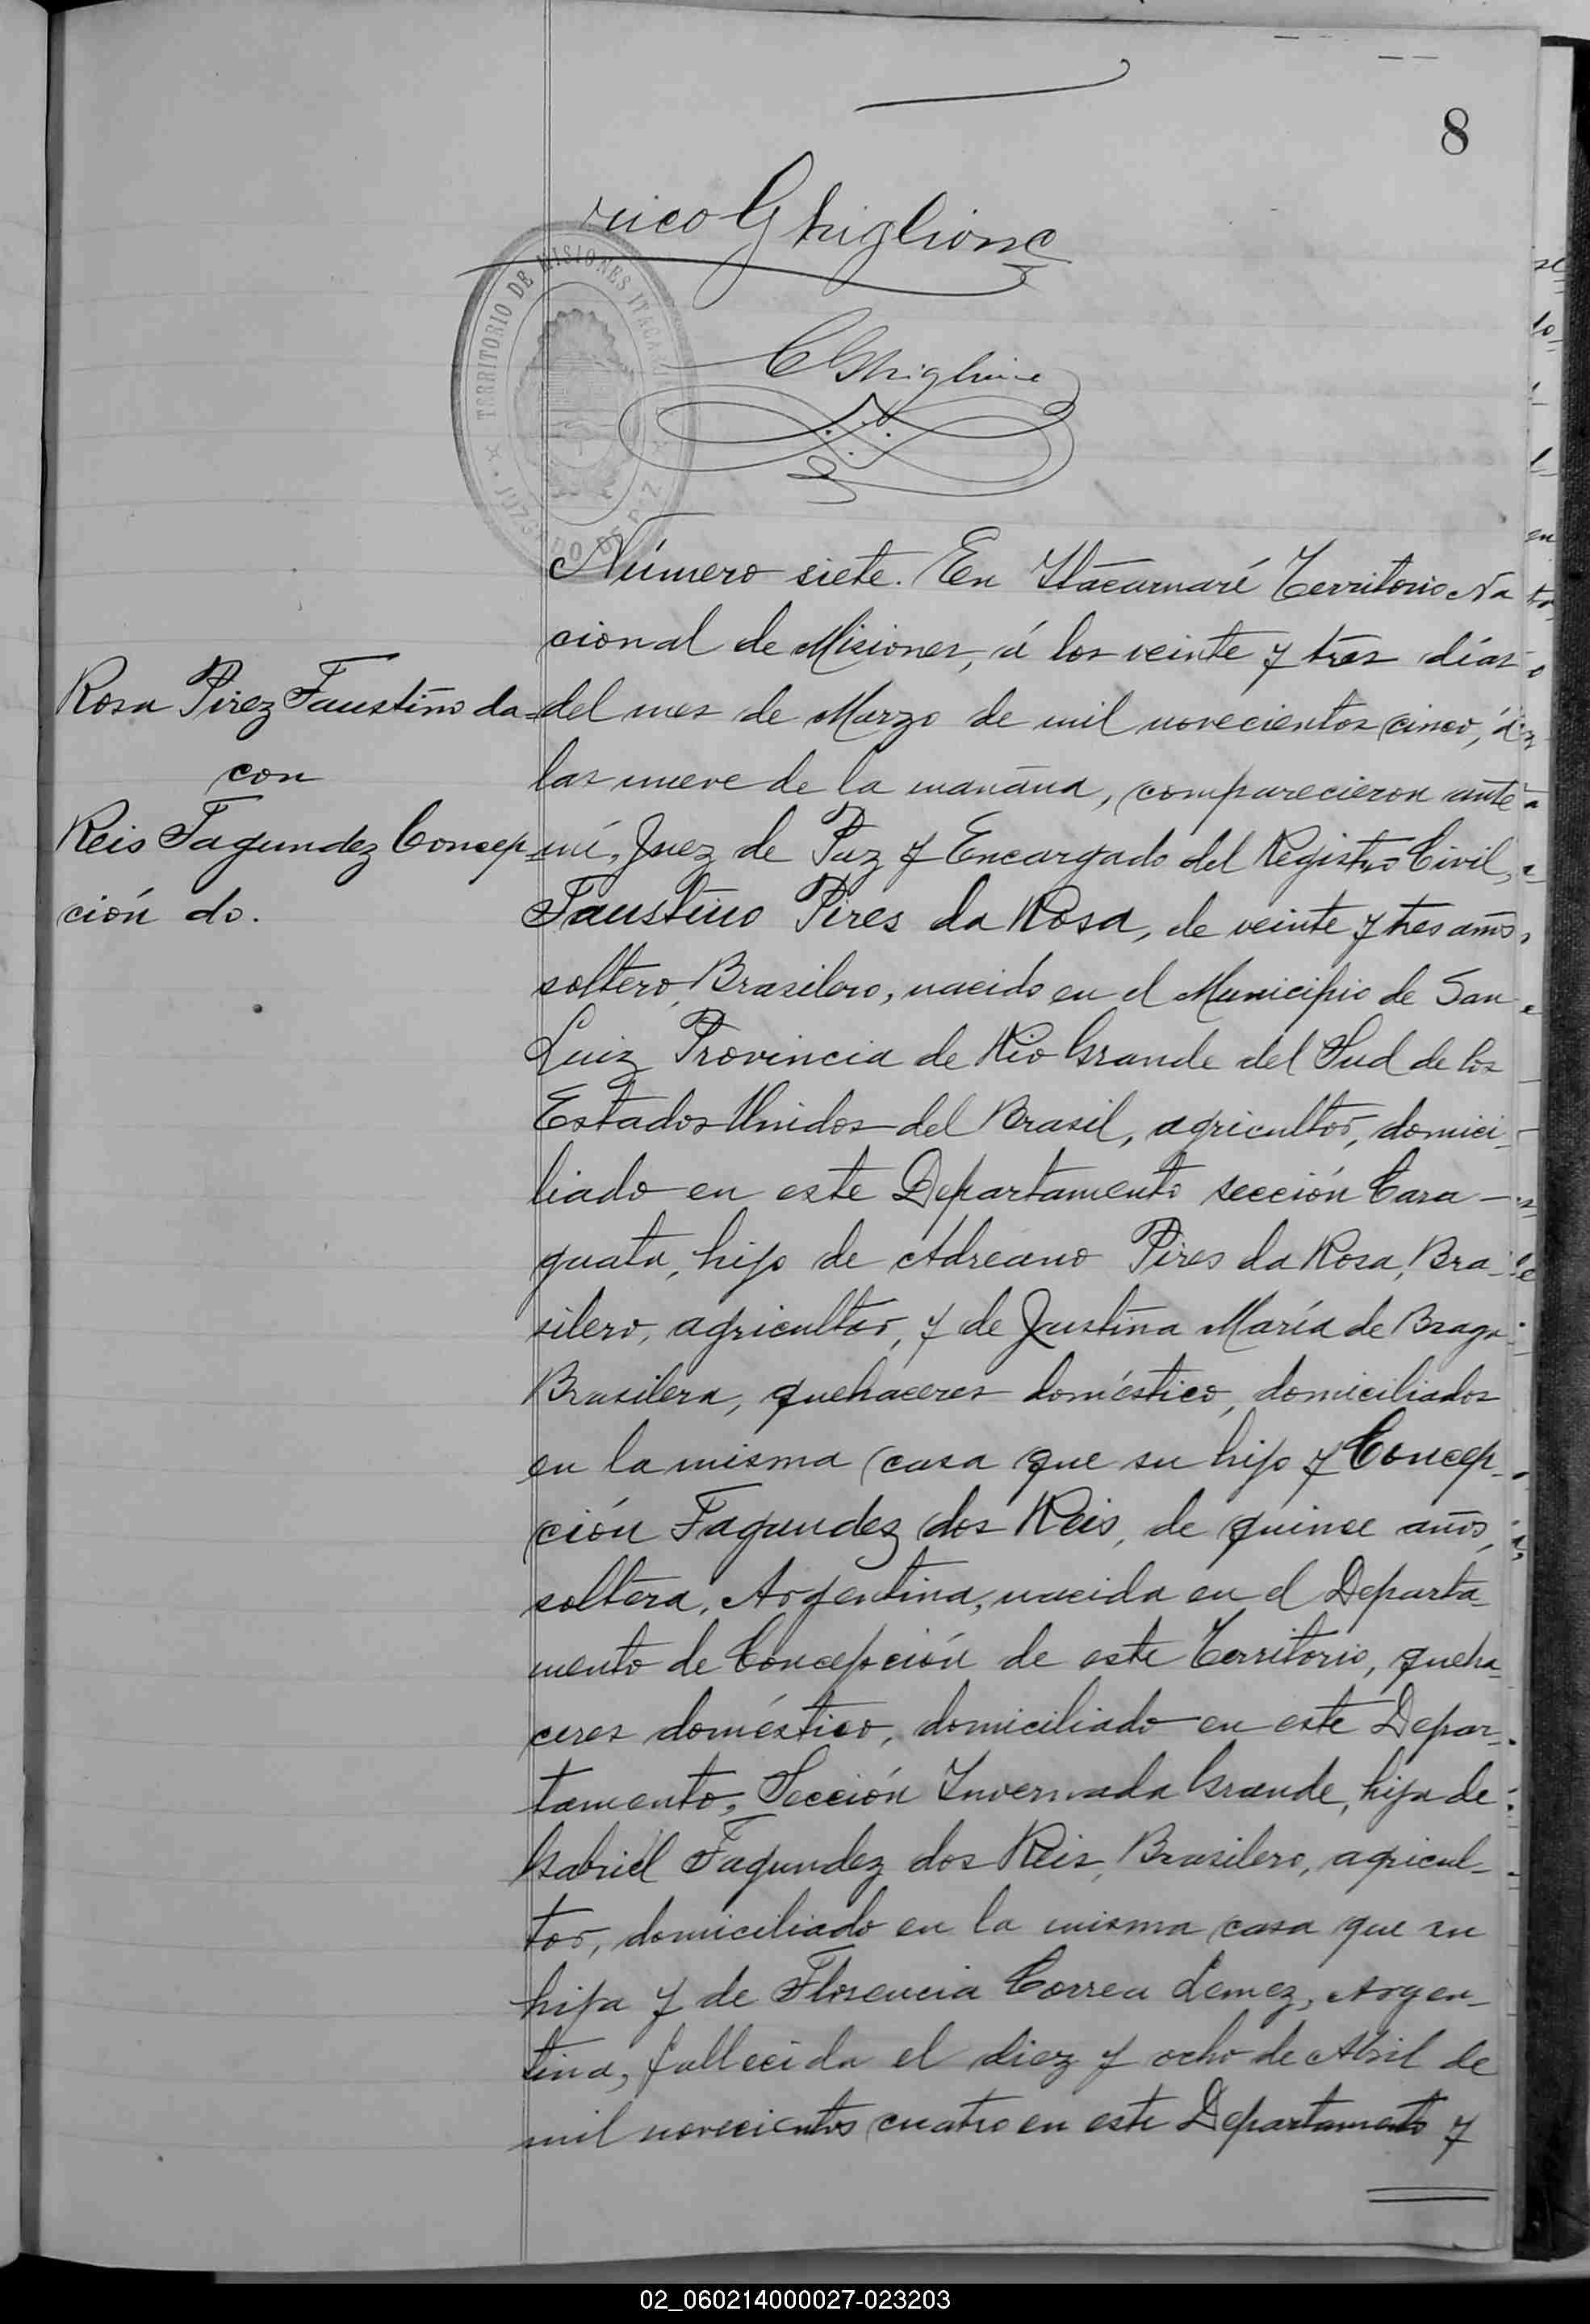 8
rico Ghiglione
C Ghiglione
TERRITORIO DE MISIONES ITACA
JUZGADO DE PAZ
Rosa Pirez Faustino da
con
Reis Fagundez Concep
ción do.
Número siete. En Itacaruaré Territorio Na
cional de Misiones, á los veinte y tres días
del mes de Marzo de mil novecientos cinco, á
las nueve de la mañana, comparecieron ante
mí, Juez de Paz y Encargado del Registro Civil,
Faustino Pires da Rosa, de veinte y tres años,
soltero, Brasilero, nacido en el Municipio de San
Luiz Provincia de Rio Grande del Sud de los
Estados Unidos del Brasil, agricultor, domici-
liado en este Departamento sección Cara-
guata, hijo de Adreano Pires da Rosa, Bra-
silero, agricultor, y de Justina María de Braga
Brasilera, quehaceres doméstico, domiciliados
en la misma casa que su hijo y Concep-
ción Fagundez dos Reis, de quince años,
soltera, Argentina, nacida en el Departa-
mento de Concepción de este Territorio, queha-
ceres doméstico, domiciliado en este Depar-
tamento, Sección Invernada Grande, hija de
Gabriel Fagundez dos Reis, Brasilero, agricul-
tor, domiciliado en la misma casa que su
hija y de Florencia Correa Lemez, Argen-
tina, fallecida el diez y ocho de Abril de
mil novecientos cuatro en este Departamento y
02_060214000027-023203